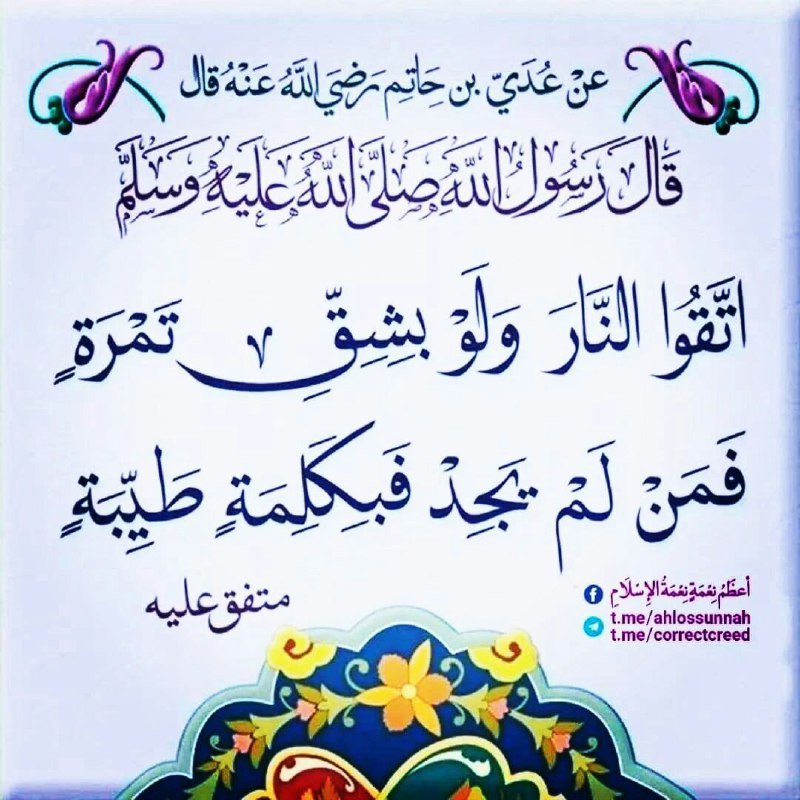 عَنْ عُدَيّ بن حَاتِم رَضِيَ اللَّهُ عَنْهُ قال
قَالَ رَسُولُ اللَّهِ صَلَّى اللَّهُ عَلَيْهِ وَسَلَّمَ
اتَّقُوا النَّارَ وَلَوْ بِشِقِّ تَمْرَةٍ
فَمَنْ لَمْ يَجِدْ فَبِكَلِمَةٍ طَيِّبَةٍ
متفق عليه
أعظَمُ نِعْمَةٍ نِعْمَةُ الإِسْلَامِ
t.me/ahlossunnah
t.me/correctcreed